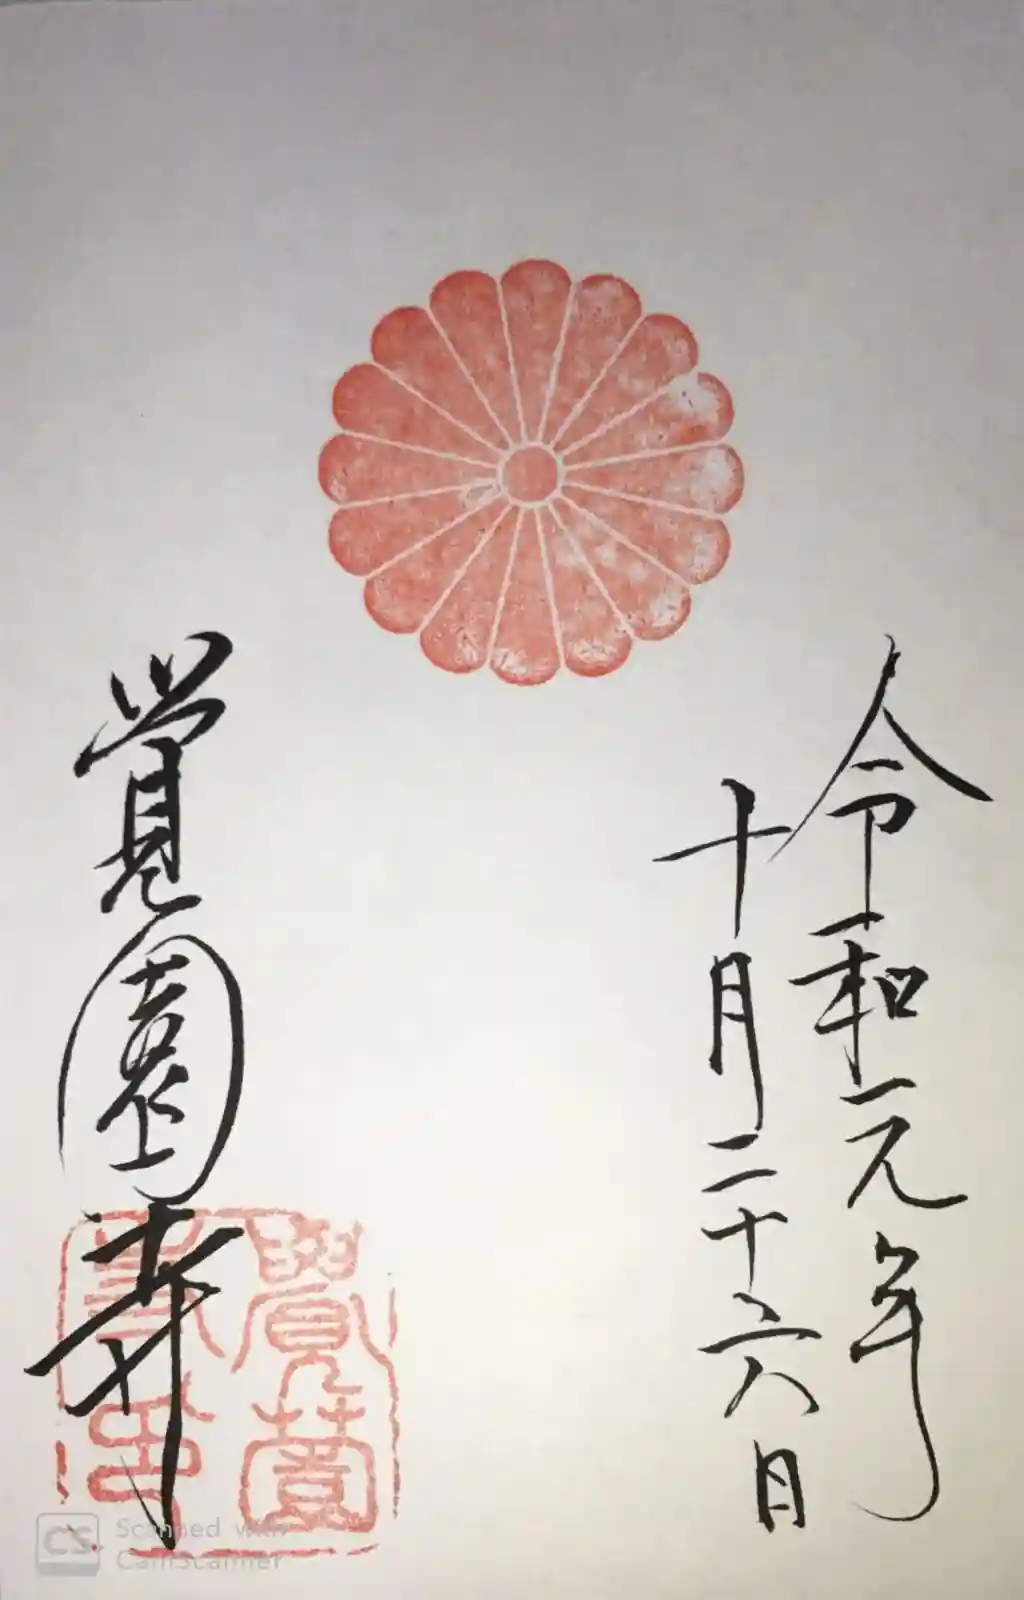 令和元年
十月二十六日
覺園寺
Scanned with
CamScanner